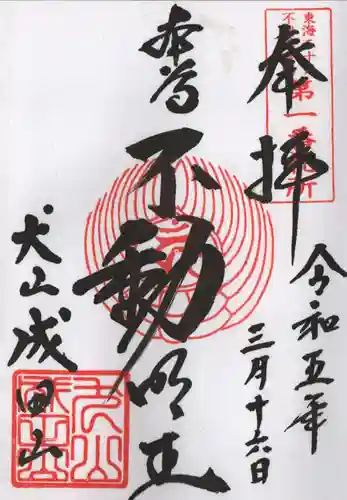 奉拝
東海三十
不
第一番
所
令和五年
三月十六日
本尊
不動明王
犬山成田山